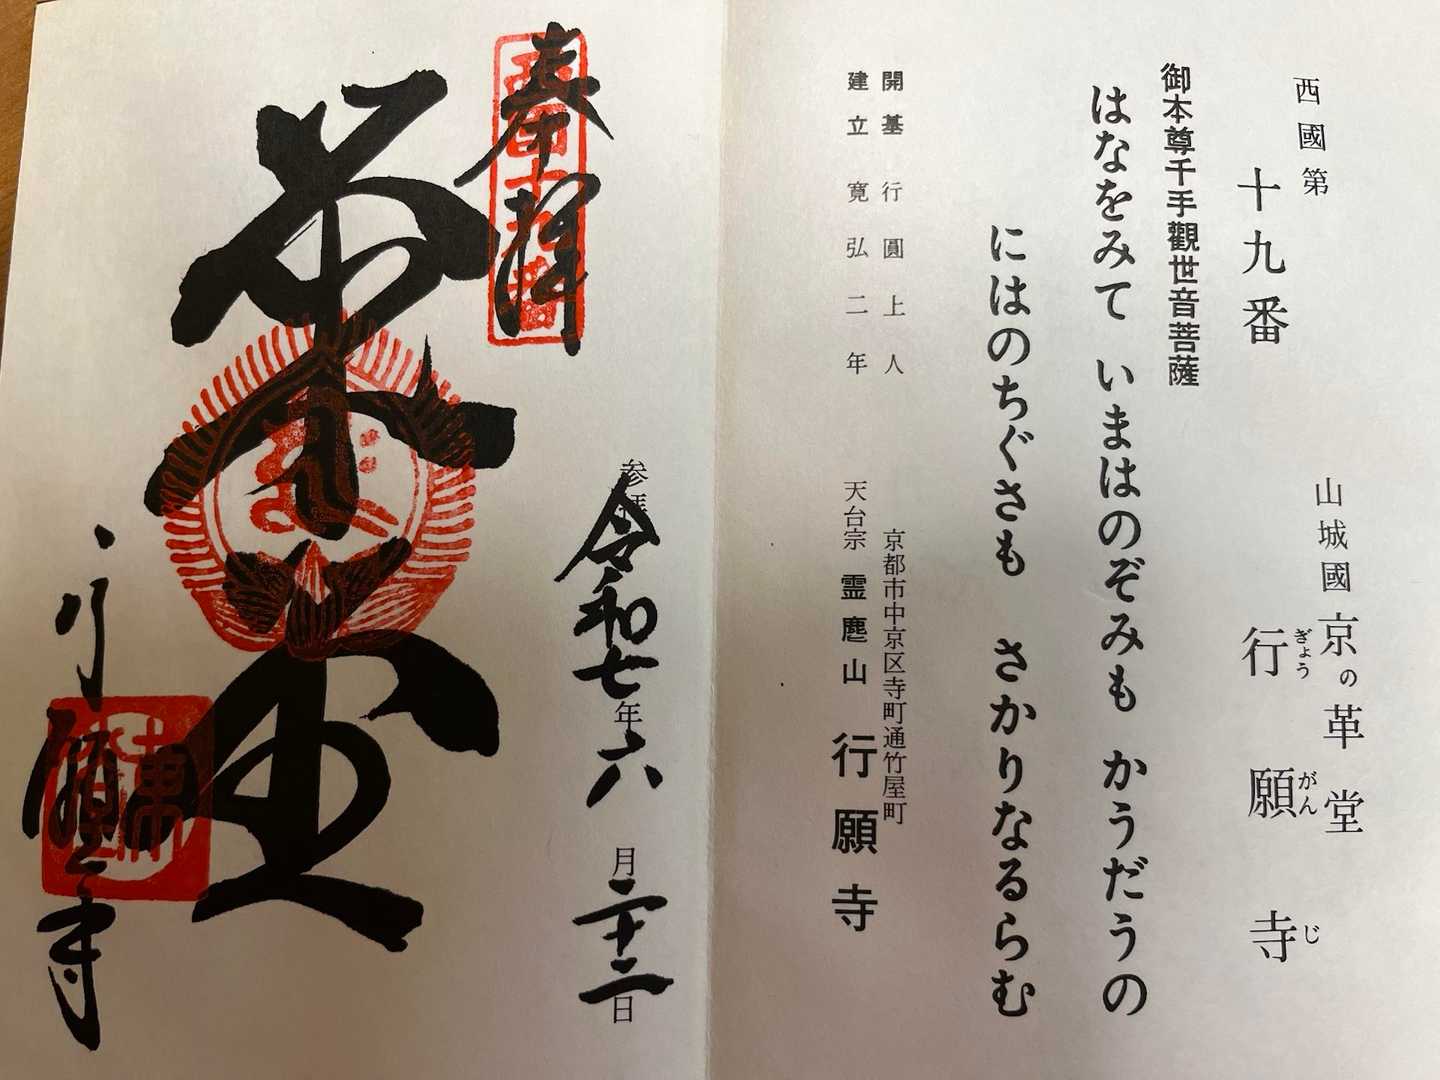 西國第
十九番
山城國 京の革堂
行願寺
ぎょうがんじ
御本尊千手觀世音菩薩
はなをみて いまはのぞみも かうだうの
にはのちぐさも さかりなるらむ
開基 行圓上人
建立 寛弘二年
京都市中京区寺町通竹屋町
天台宗 霊麀山 行願寺
奉拝
参拝 令和七年六月二十二日
革堂
行願寺